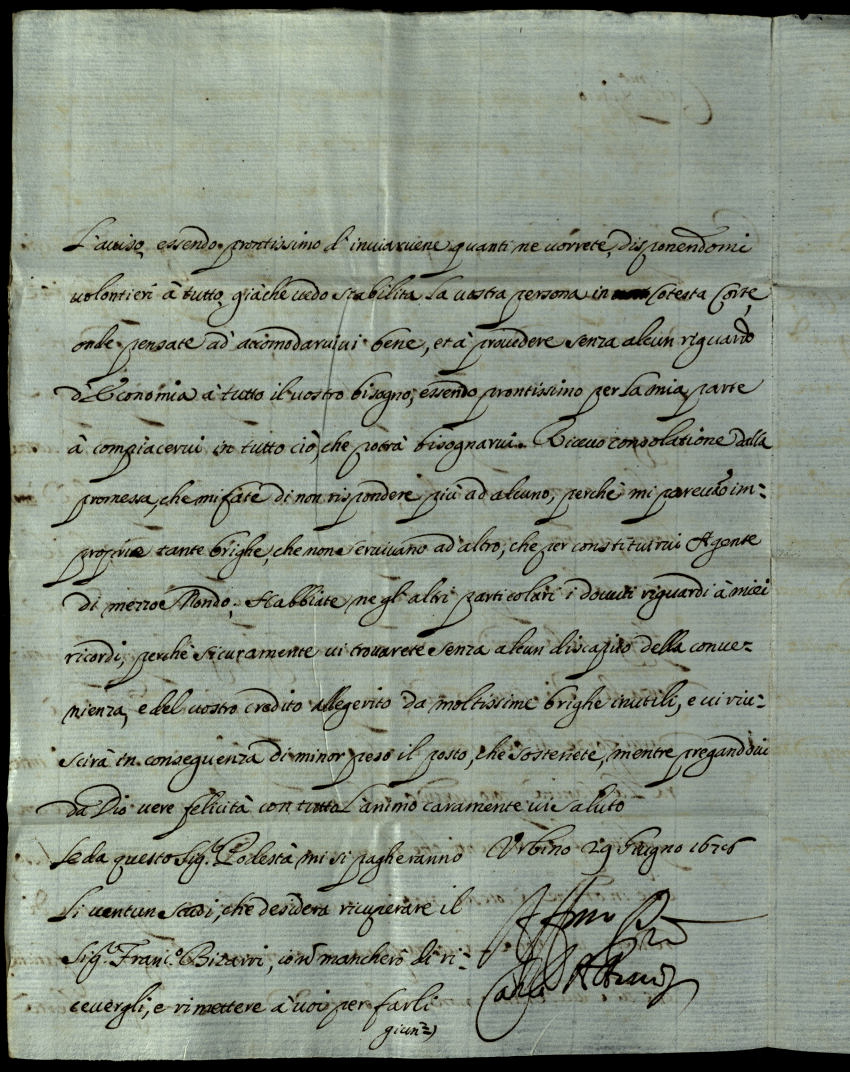 L'auiso, essendo prontissimo d'inuiaruene quanti ne uorrete, disponendomi
uolontieri à tutto, giàche uedo stabilita la uostra persona in Cotesta Corte,
onde pensate ad accomodaruiui bene, et à prouedere senza alcun riguardo
d'Economia à tutto il uostro bisogno, essendo prontissimo per la mia parte
à compiacerui in tutto ciò, che potrà bisognarui. Riceuo consolatione dalla
promessa, che mi fate di non rispondere più ad alcuno, perche mi pareuano im=
proprie tante brighe, che non seruiuano ad altro, che per constituirui Agente
di mezzo Mondo. Habbiate ne gl'altri particolari i douuti riguardi à miei
ricordi, perche sicuramente ui trouarete senza alcun discapito della conue=
nienza, e del uostro credito allegerito da moltissime brighe inutili, e ui riu=
scirà in conseguenza di minor peso il posto, che sostenete, mentre pregandoui
da Dio uere felicità con tutto l'animo caramente ui saluto
Se da questo Sig.r Podestà mi si pagheranno Vrbino 29 Giugno 1676
li uentun scudi, che desidera ricuperare il
Sig.r Franc.o Bizarri, io nō mancherò di ri=
ceuergli, e rimettere à uoi per farli
Carlo